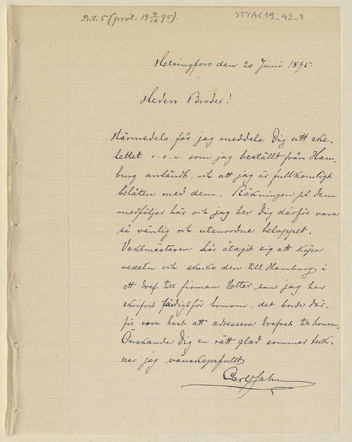 Bil. 5 (prot. 18 9/IX 95).
STYAC19_42_1
Helsingfors den 20 Juni 1895.
Heders Broder!
Härmedels får jag meddela Dig att ske-
lettet o.s.v. som jag beställt från Ham-
burg anländt, och att jag är fullkomligt
belåten med dem. Räkningen på dem
medföljer här och jag ber Dig därför vara
så vänlig och utanordna beloppet.
Vaktmästaren här åtagit sig att köpa
vexeln och skicka den till Hamburg i
ett bref till firman som jag har
skrifvit färdigt för honom, det borde där-
för vara bäst att adressera brefvet till honom.
Önskande Dig en rätt glad sommar teck-
nar jag vänskapsfullt